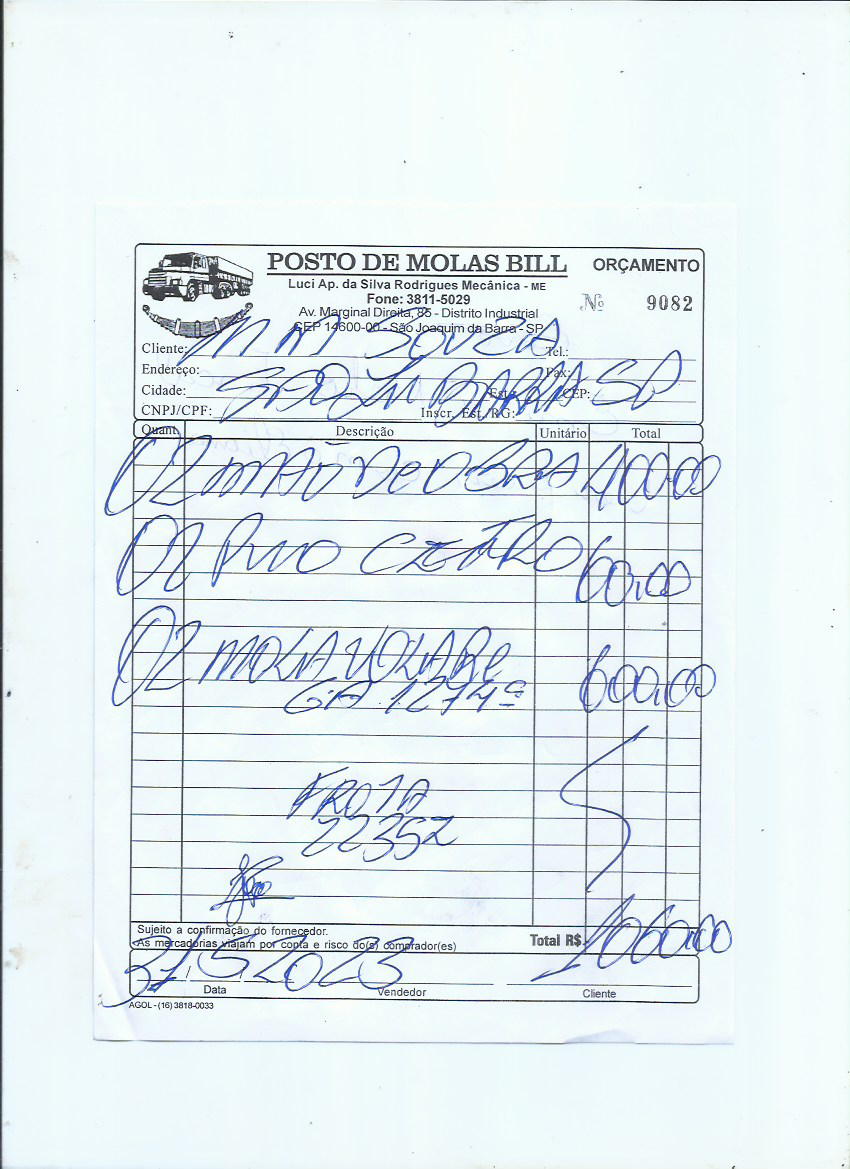 POSTO DE MOLAS BILL
ORÇAMENTO
Luci Ap. da Silva Rodrigues Mecânica - ME
Fone: 3811-5029
Nº 9082
Av. Marginal Direita, 85 - Distrito Industrial
CEP 14600-00 - São Joaquim da Barra - SP
Cliente: SOUZA Tel.:
Endereço: Fax:
Cidade: BARRA SP Est.: CEP:
CNPJ/CPF: Inscr. Est./RG:
Quant. Descrição Unitário Total
02 MÃO DE OBRA 400,00
02 PINO CENTRO 60,00
02 MOLA VOLARE 600,00
1274ª
FROTA
22352
Sujeito a confirmação do fornecedor.
As mercadorias viajam por conta e risco do(s) comprador(es)
Total R$ 1060,00
31/5/2023
Data Vendedor Cliente
AGOL - (16) 3818-0033